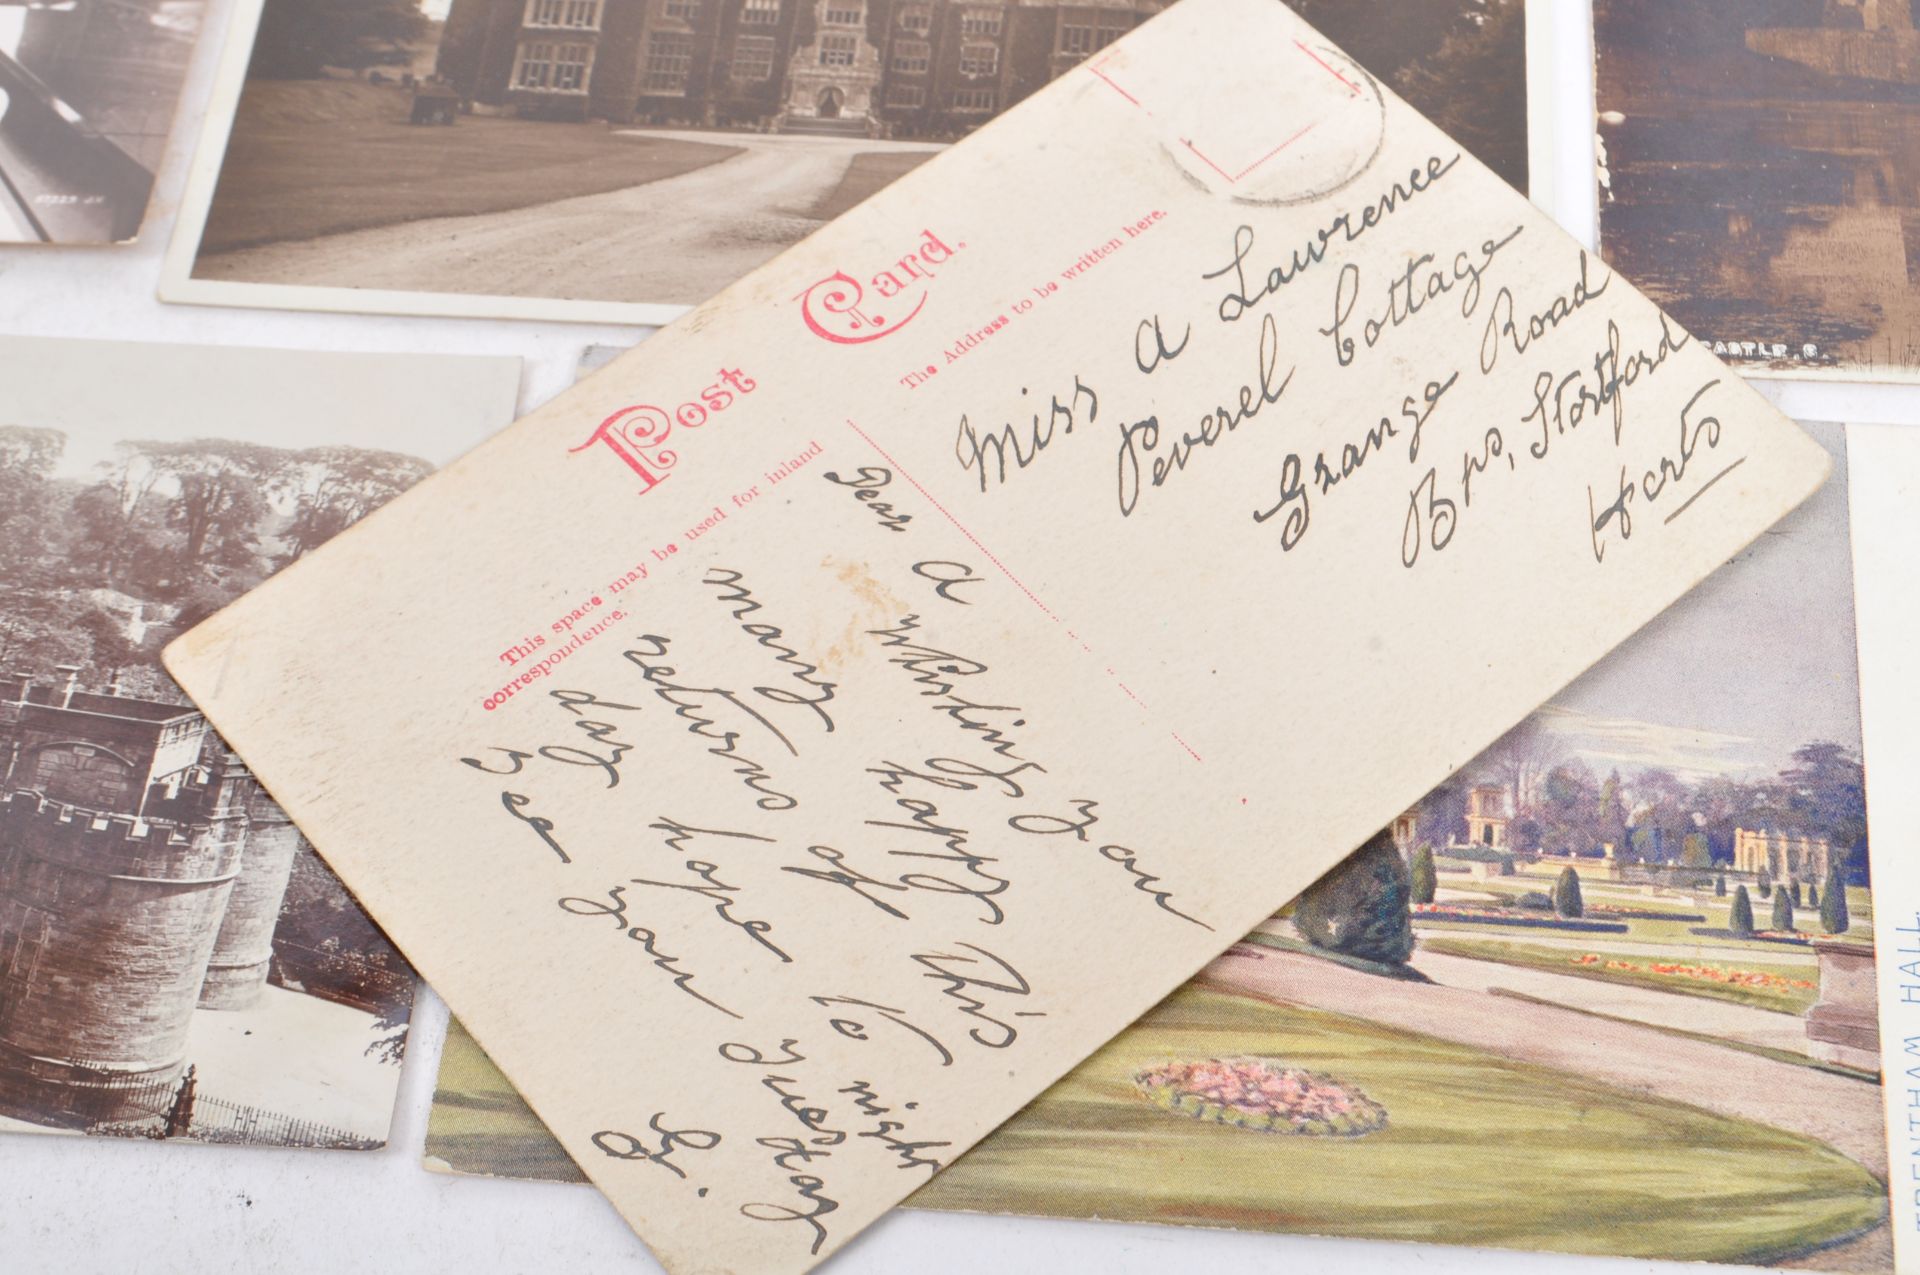 Post Card.
This space may be used for inland
correspondence.
The Address to be written here.
Dear A
Wishing you
many happy
returns of this
day hope to night
see you Tuesday
G.
Miss A Lawrence
Peverel Cottage
Grange Road
Bps, Stortford
Herts
CASTLE. S.
TRENTHAM HALL